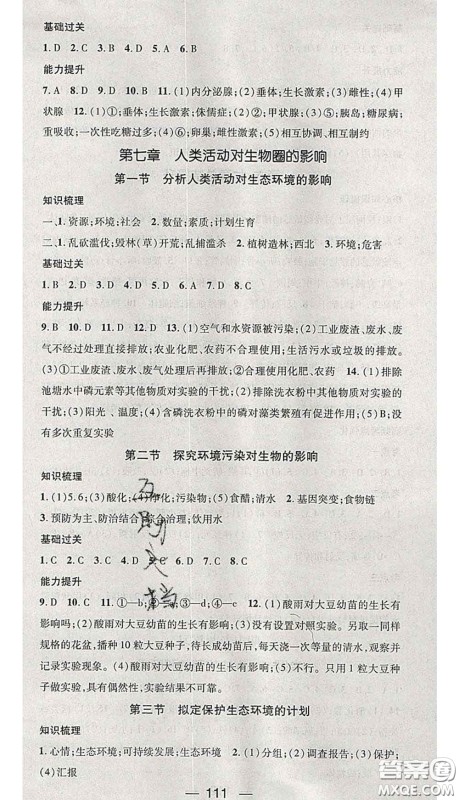 基础过关
1. D　2. C　3. A　4. C　5. A　6. B
能力提升
7. A　8. D　9. C　10. D　11. (1)内分泌腺;(2)垂体;生长激素;(3)雌性;(4)甲
状腺　12. (1)①;垂体;生长激素;侏儒症;(2)②;甲状腺;(3)⑤;胰岛;糖尿病;
重吸收;一次性吃糖过多;(4)⑥;卵巢;雌性激素;(5)相互协调、相互制约
第七章　人类活动对生物圈的影响
第一节　分析人类活动对生态环境的影响
知识梳理
一、1. 资源;环境;社会　2. 数量;素质;计划生育
二、1. 乱砍滥伐;毁林(草)开荒;乱捕滥杀　2. 植树造林;西北　3. 环境;危害
基础过关
1. B　2. A　3. D　4. C　5. D　6. D　7. D　8. C
能力提升
9. B　10. D　11. D　12. D　13. (1)空气和水资源被污染;(2)工业废渣、废水、废
气不经过处理直接排放;农业化肥、农药不合理使用;生活污水或垃圾的排放。
(3)①工业废渣、废水、废气处理后再排放;②合理使用化肥、农药　14. (1)排除
池塘水中磷元素等其他物质对实验的干扰;(2)排除洗衣粉中的其他物质对实验
的干扰;(3)阳光、温度;(4)含磷洗衣粉中的磷对藻类繁殖有促进作用;(5)B;没
有多次重复实验
第二节　探究环境污染对生物的影响
知识梳理
1. (1)5.6;(3)酸化;(4)净化;污染物;(5)食醋;清水　2. 基因突变;食物链
3. 预防为主、防治结合、综合治理;饮用水
基础过关
1. C　2. C　3. A　4. C　5. D　6. D　7. D　8. C
能力提升
9. D　10. C　11. ①—b;②—d;③—a;④—c　12. (1)酸雨对大豆幼苗的生长有
影响吗;(2)酸雨对大豆幼苗的生长有影响;(3)没有设置对照实验。另取一同样
规格的花盆,播种 10 粒大豆种子,待长成幼苗后,每天浇一次等量的清水,观察并
记录实验现象。(4)酸雨对大豆幼苗的生长有影响;(5)不行。只用 1 粒大豆种
子做实验,具有偶然性,实验结果不可靠。
第三节　拟定保护生态环境的计划
知识梳理
1. 心情;生态环境;可持续发展;生态环境　2. (1)分组;(2)调查报告;(3)保护;
(4)汇报
— 111 —
答案圈
MXQE.COM